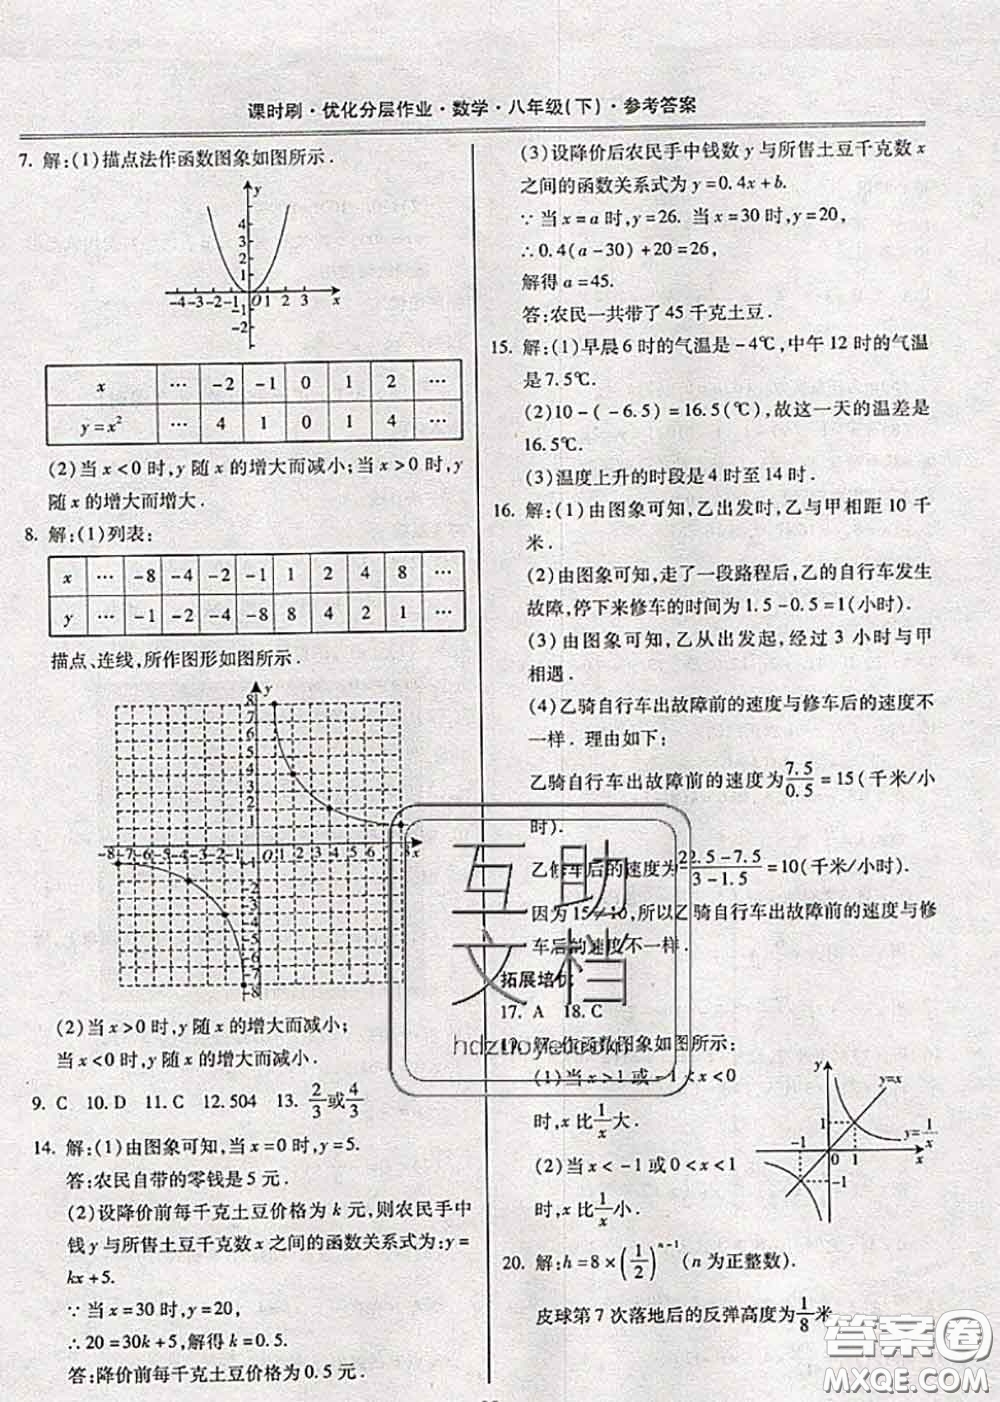 课时刷·优化分层作业·数学·八年级(下)·参考答案
7. 解:(1)描点法作函数图象如图所示.
y
4
3
2
1
-4 -3 -2 -1 O 1 2 3 x
-1
-2
x … -2 -1 0 1 2 …
y=x² … 4 1 0 1 4 …
(2)当 x<0 时,y 随 x 的增大而减小;当 x>0 时,y
随 x 的增大而增大.
8. 解:(1)列表:
x … -8 -4 -2 -1 1 2 4 8 …
y … -1 -2 -4 -8 8 4 2 1 …
描点、连线,所作图形如图所示.
y
8
7
6
5
4
3
2
1
-8 -7 -6 -5 -4 -3 -2 -1 O 1 2 3 4 5 6 7 8 x
-1
-2
-3
-4
-5
-6
-7
-8
(2)当 x>0 时,y 随 x 的增大而减小;
当 x<0 时,y 随 x 的增大而减小.
9. C 10. D 11. C 12. 504 13. 2/3 或 4/3
14. 解:(1)由图象可知,当 x=0 时,y=5.
答:农民自带的零钱是 5 元.
(2)设降价前每千克土豆价格为 k 元,则农民手中
钱 y 与所售土豆千克数 x 之间的函数关系式为:y=
kx+5.
∵ 当 x=30 时,y=20,
∴20=30k+5,解得 k=0.5.
答:降价前每千克土豆价格为 0.5 元.
(3)设降价后农民手中钱数 y 与所售土豆千克数 x
之间的函数关系式为 y=0.4x+b.
∵ 当 x=a 时,y=26. 当 x=30 时,y=20,
∴0.4(a-30)+20=26,
解得 a=45.
答:农民一共带了 45 千克土豆.
15. 解:(1)早晨 6 时的气温是 -4℃,中午 12 时的气温
是 7.5℃.
(2)10-(-6.5)=16.5(℃),故这一天的温差是
16.5℃.
(3)温度上升的时段是 4 时至 14 时.
16. 解:(1)由图象可知,乙出发时,乙与甲相距 10 千
米.
(2)由图象可知,走了一段路程后,乙的自行车发生
故障,停下来修车的时间为 1.5-0.5=1(小时).
(3)由图象可知,乙从出发起,经过 3 小时与甲
相遇.
(4)乙骑自行车出故障前的速度与修车后的速度不
一样. 理由如下:
乙骑自行车出故障前的速度为 7.5/0.5=15(千米/小
时).
乙修车后的速度为 22.5-7.5/3-1.5=10(千米/小时).
因为 15≠10,所以乙骑自行车出故障前的速度与修
车后的速度不一样.
拓展培优
17. A 18. C
19. 解:作函数图象如图所示:
(1)当 x>1 或 -1<x<0
时,x 比 1/x 大.
(2)当 x<-1 或 0<x<1
时,x 比 1/x 小.
y y=x
1 y=1/x
-1 0 1 x
-1
20. 解:h=8×(1/2)ⁿ⁻¹(n 为正整数).
皮球第 7 次落地后的反弹高度为 1/8 米.
互助
文档
hdzuoye.com
答案圈
MXQE.COM